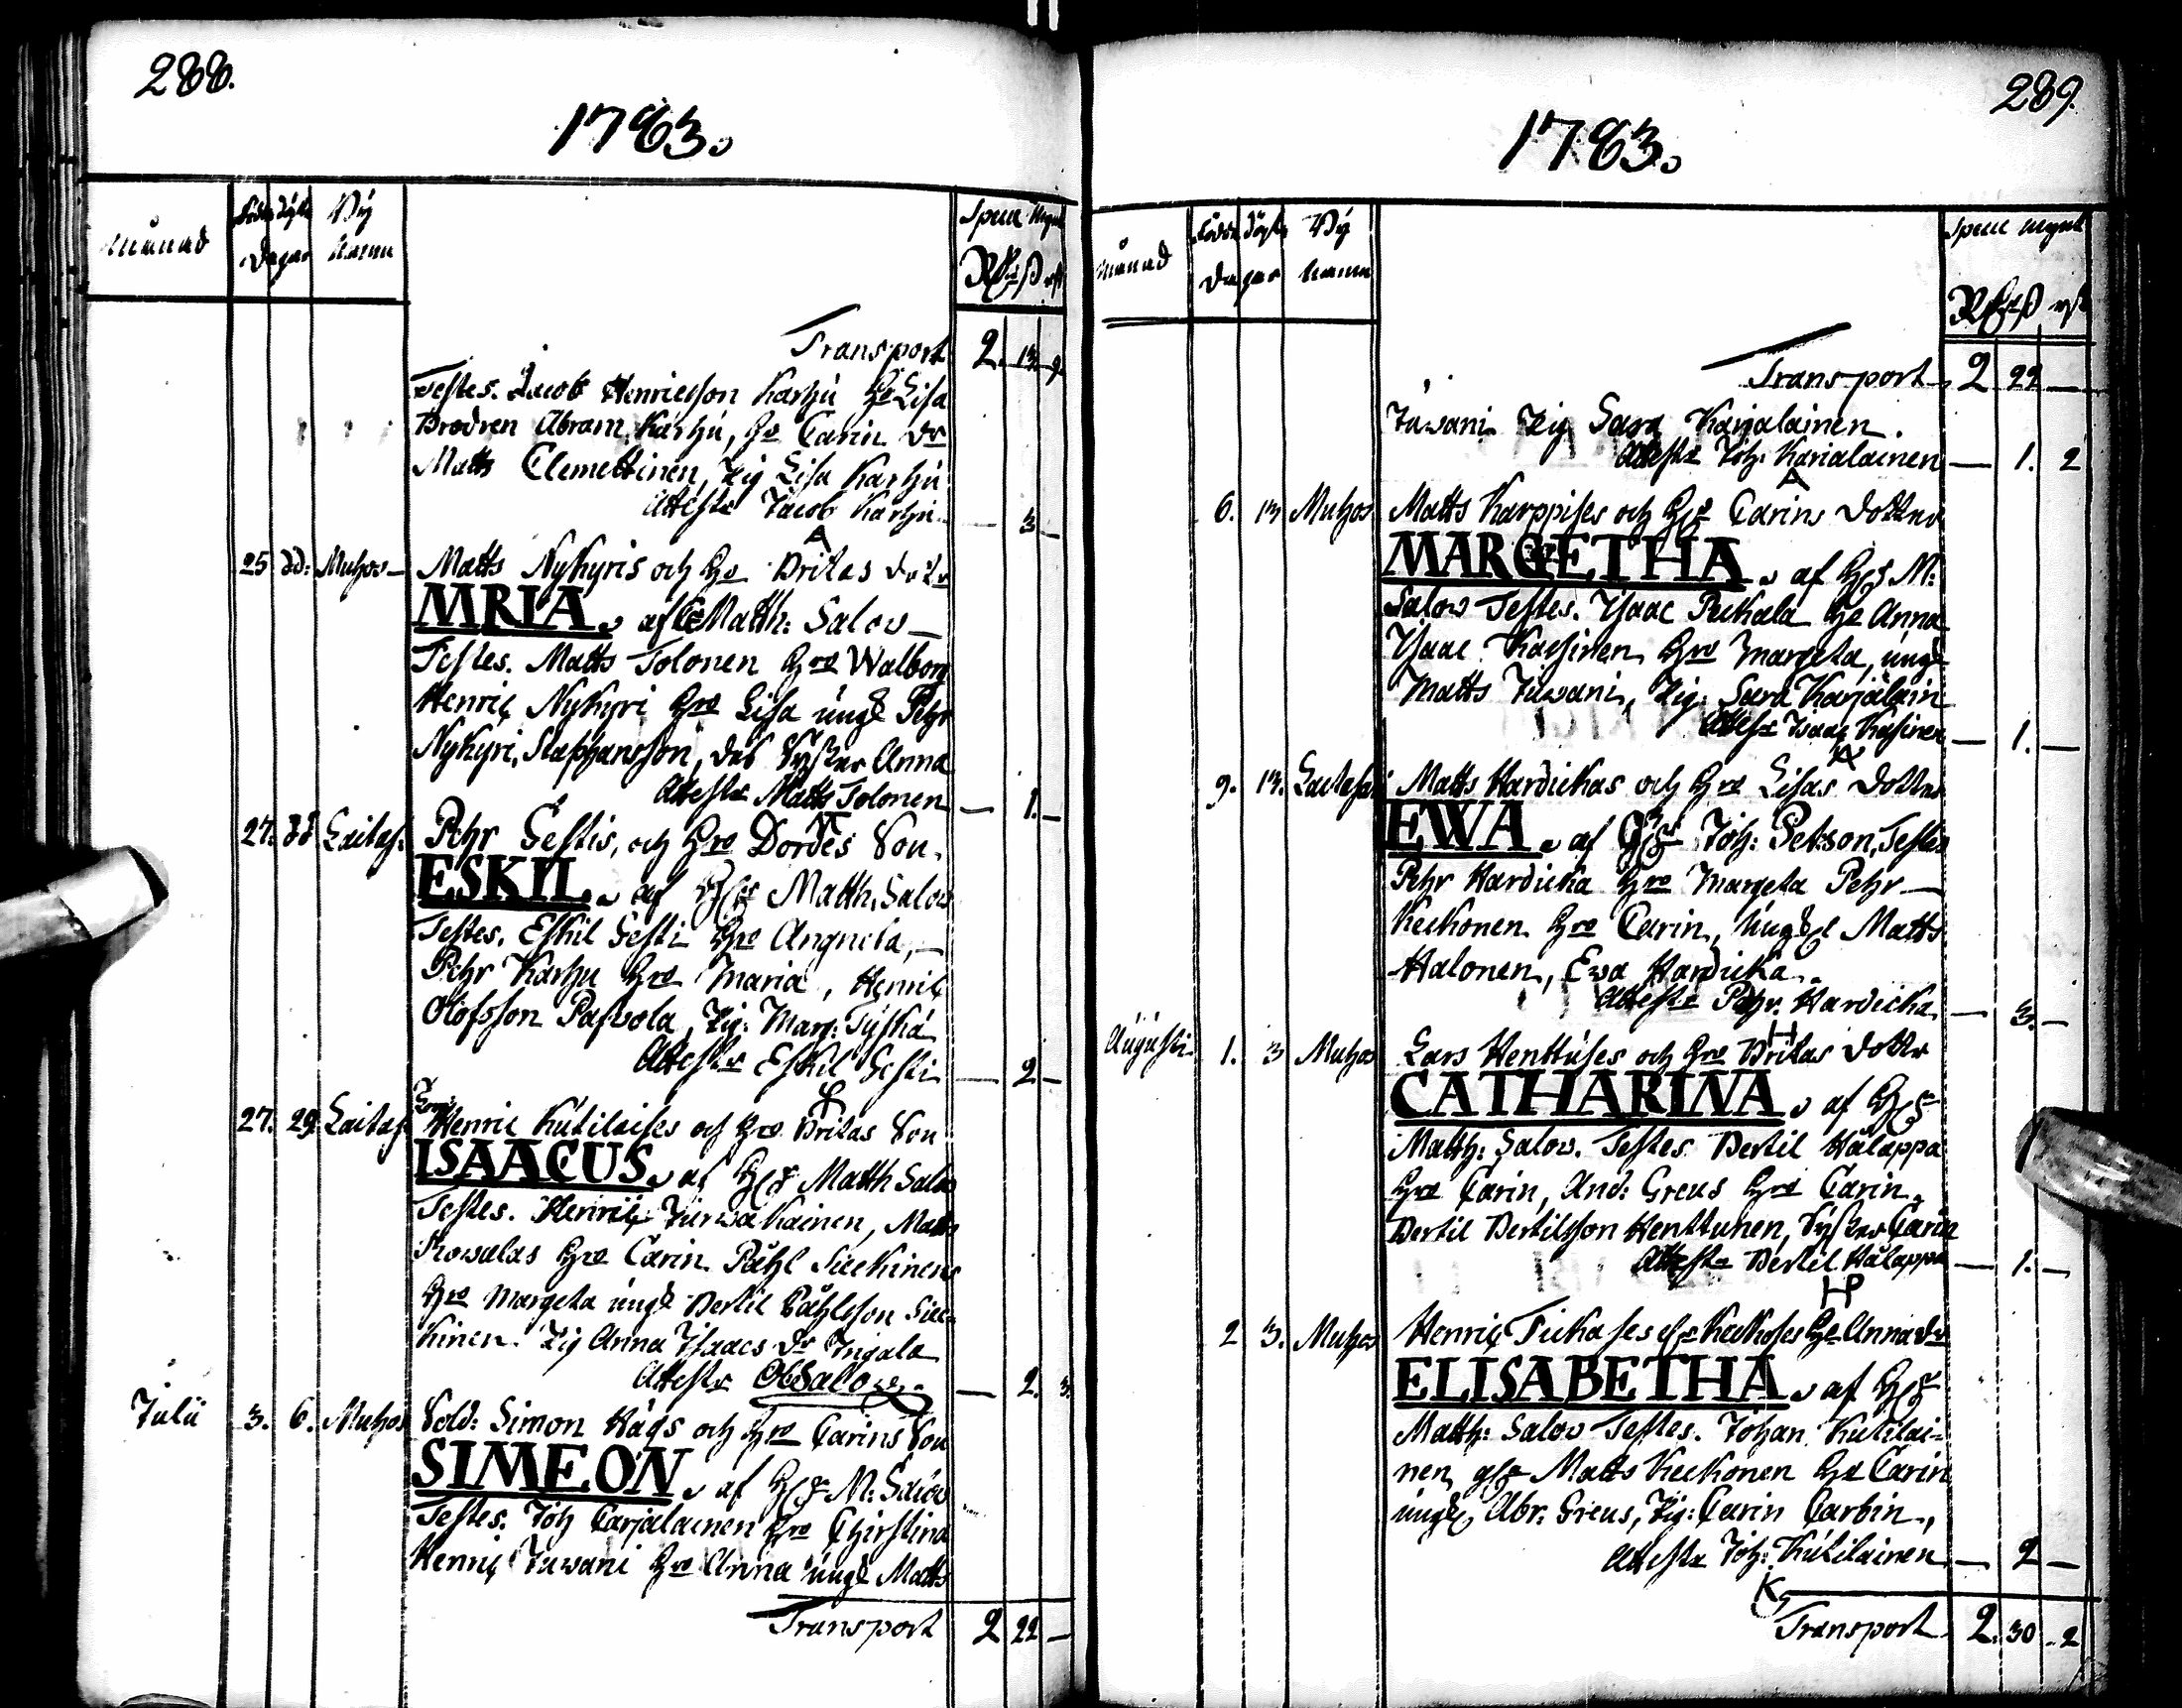 288.
1783.
Månad
Födde Döpte
Dagar
Bÿ
Namn
Specie Mynt
Rdr ß rst
Transport 2. 13 9.
Testes. Jacob Henricsson Karhu Hu Lisa
Brodren Abram Karhu, Hu Carin Dr
Matts Clemettinen, Pig Lisa Karhu
Attestr Jacob Karhu — 3 —
25 dd: Muhos — Matts Nykyris och Hu Britas dotr
MRIA. af Matth: Salov —
Testes. Matts Tolonen Hru Walborg
Henric Nykyri Hru Lisa ung Pehr
Nykyri, Staphansson, des Syster Anna
Attestr Matts Tolonen — 1. —
27. dd Laitas: Pehr Gestis, och Hru Dordes Son
ESKIL. af Matth. Salov
Testes. Eskil Gesti Hru Angneta, —
Pehr Karhu Hru Maria, Henric
Olofsson Paswola, Pig: Marg: Tyskä
Attestr Eskil Gesti — 2 —
27. 29. Laitas Henric Kutilaises och Hru Britas Son
ISAACUS. af Matth Salov
Testes. Henric Turwakainen, Matts
Kowalas Hru Carin Påhl Suckinens
Hru Margeta ung Bertil Påhlsson Suc-
kinen. Pig Anna Isaacs Dr Ingala
Attestr Ob Salov — 2. 3.
Julii 3. 6. Muhos Sold: Simon Hägs och Hru Carins Son
SIMEON. af M: Salov
Testes. Joh Carjalainen Hru Chirstina
Henric Juwani Hru Anna ung Matts
Transport 2 22 —
289.
1783.
Månad
Födde Döpte
Dagar
Bÿ
Namn
Specie Mynt
Rdr ß rst
Transport 2 22 —
Juwani Pig Sara Karjalainen.
Attestr Joh: Karialainen — 1. 2
6. 13 Muhos Matts Karppises och Hru Carins Dotter
MARGETHA. af M:
Salov Testes. Ysaac Peckala Hu Anna
Ysaac Kasinen Hru Margeta, ung
Matts Juwani, Pig: Sara Karjälain
Attestr Isaac Kasinen — 1. —
9. 13. Laitasa Matts Hardickas och Hru Lisas Dotter
EWA. af Joh: Petrson, Testes
Pehr Hardicka Hru Margeta Pehr —
Keckonen Hru Carin, Ung Matts
Halonen, Ewa Hardicka.
Attestr Pehr. Hardicka — 3. —
Augusti 1. 3 Muhos Lars Henttuses och Hru Britas Dotter
CATHARINA. af
Matth: Salov. Testes. Bertil Hålappa
Hru Carin, And: Greus Hru Carin,
Bertil Bertilsson Henttunen, Syster Carin
Attestr Bertil Hålappa — 1. —
2 3. Muhos Henric Tickases Keckoses Hu Anna dr
ELISABETHA. af
Matth: Salov Testes. Johan Kutilai-
nen, Matts Keckonen Hu Carin
ung Abr: Greus, Pig: Carin Carbin,
Attestr Joh: Kutilainen — 2 —
Transport 2. 30 . 2